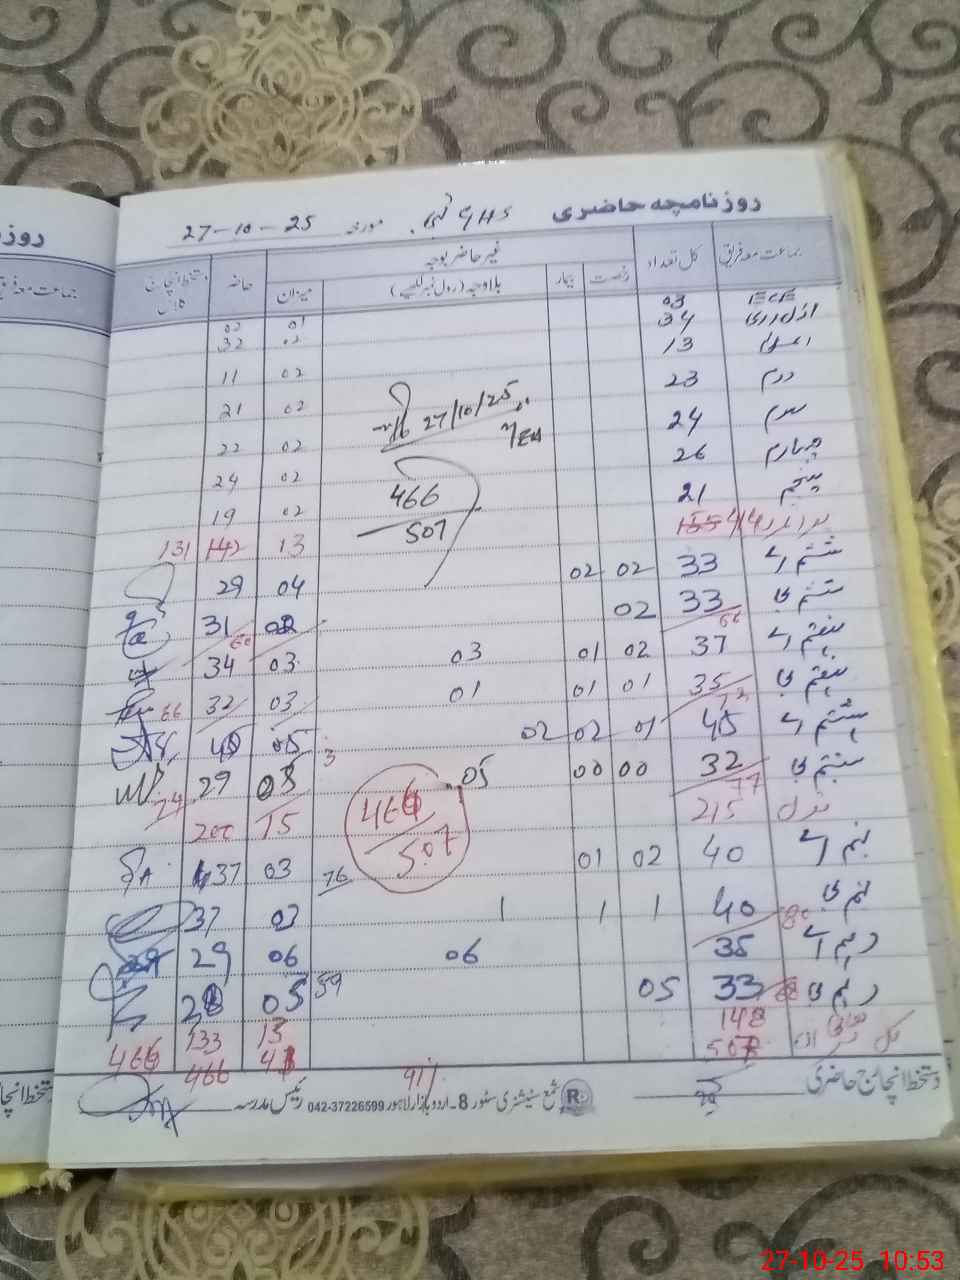 روزنامچہ حاضری GHS مورخہ 27-10-25
جماعت معہ فریق کل تعداد غیر حاضر بوجہ حاضر دستخط انچارج کلاس
رخصت بیمار بلاوجہ (رول نمبر لکھیے) میزان
ECE 03 01 02
34 02 32
13 02 11
دوم 23 02 21
سوم 24 02 22
چہارم 26 02 24
پنجم 21 02 19
27/10/25
466
507
144 13 131
ششم اے 33 02 02 04 29
ششم بی 33 02 02 31
66 60
ہفتم اے 37 02 01 03 03 34
ہفتم بی 35 01 01 01 03 32 66
72
ہشتم اے 45 01 02 02 05
ہشتم بی 32 00 00 05 03 29
77 74
215 15 200
466
507
نہم اے 40 02 01 03 37
76
نہم بی 40 1 1 1 03 37
80
دہم اے 35 06 06 29
دہم بی 33 05 05 28
59
148 133
507 41 466 466
91%
دستخط انچارج حاضری شمع سٹیشنری سٹور 8-اردو بازار لاہور 042-37226599 رئیس مدرسہ
R
روز
جماعت معہ فریق
دستخط انچا
27-10-25 10:53